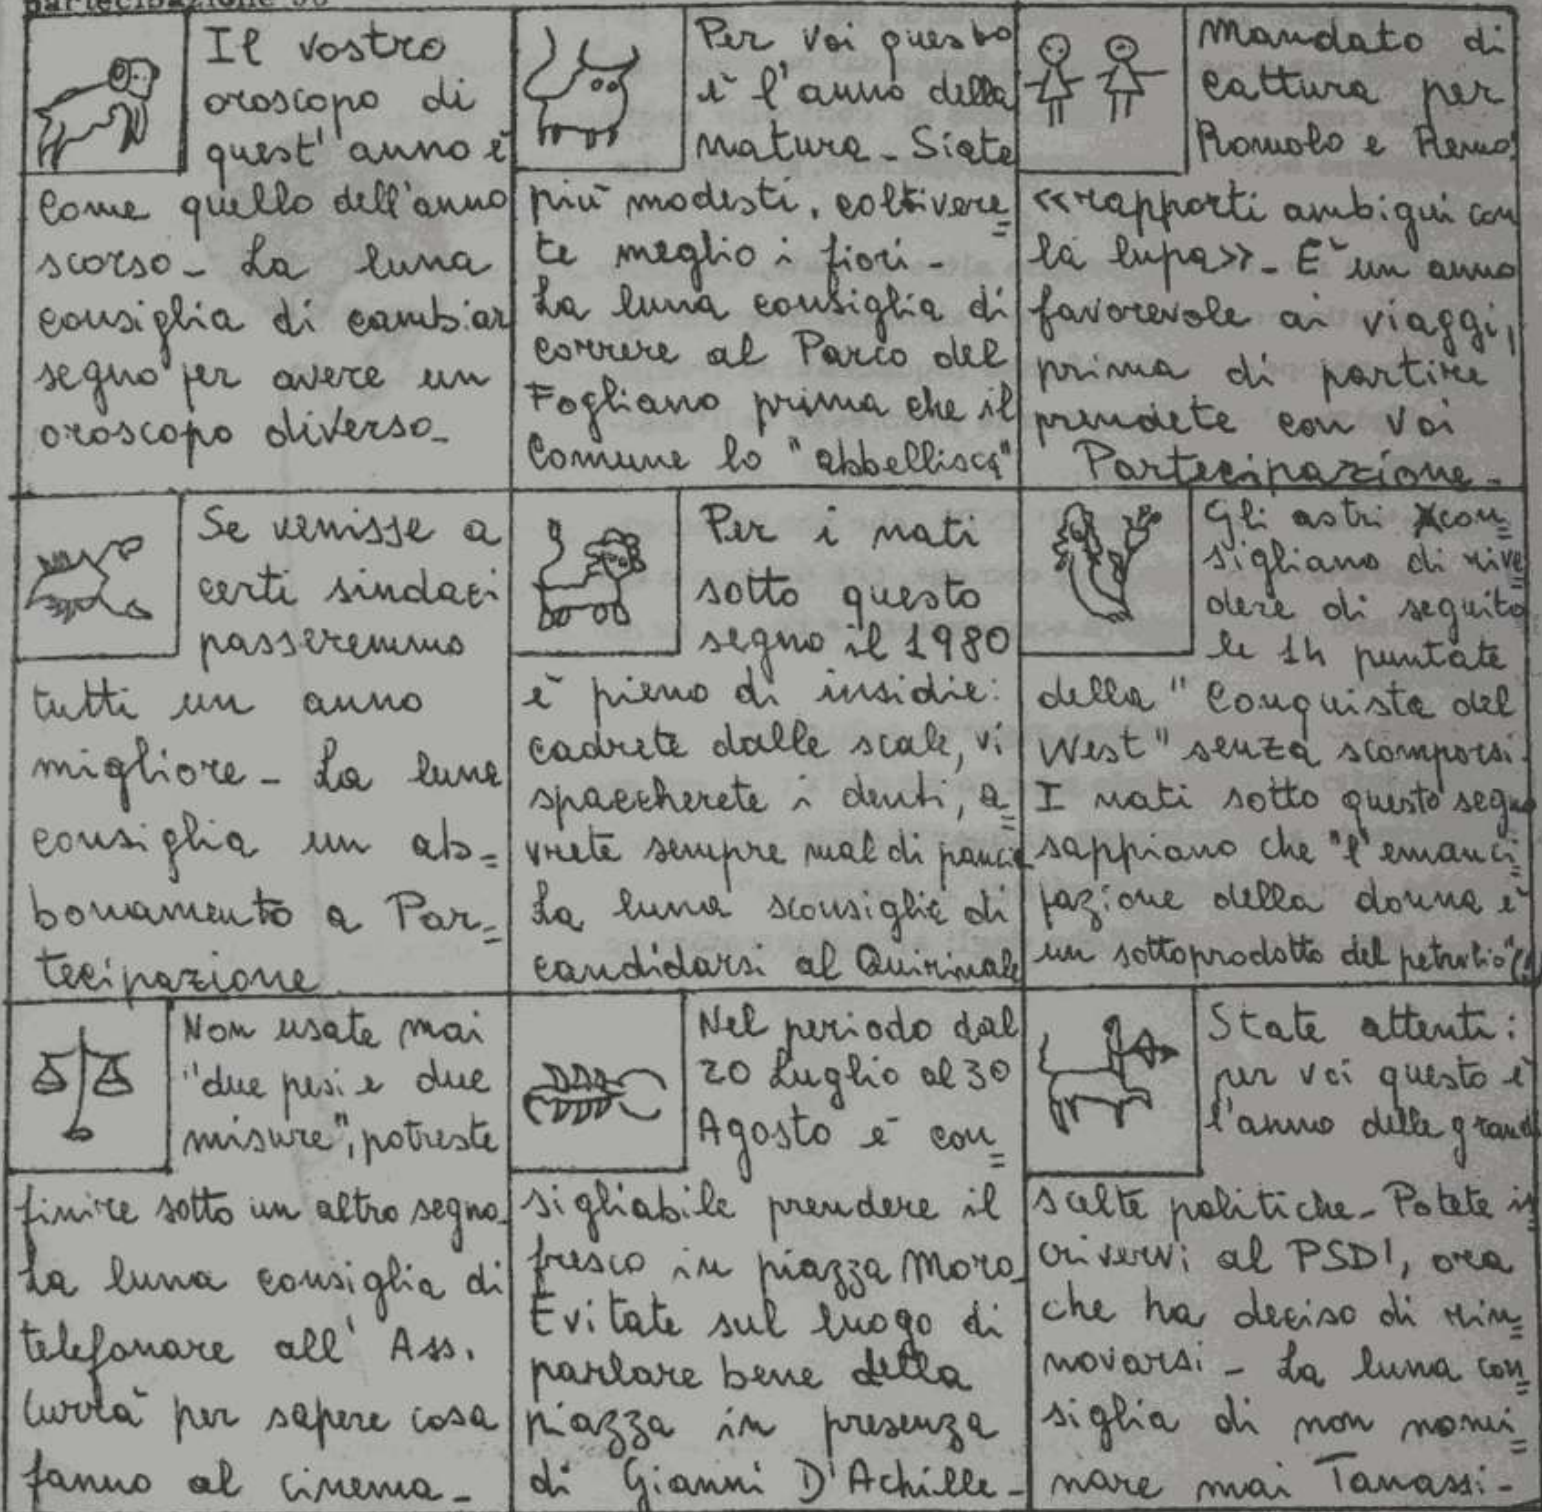 partecipazione
Il vostro
oroscopo di
quest' anno è
come quello dell'anno
scorso - La luna
consiglia di cambiar
segno per avere un
oroscopo diverso -
Per voi questo
è l'anno della
natura - Siate
più modesti, coltivere=
te meglio i fiori -
La luna consiglia di
correre al Parco del
Fogliano prima che il
Comune lo "abbellisca"
Mandato di
cattura per
Romolo e Remo:
<<rapporti ambigui con
la lupa>> - È un anno
favorevole ai viaggi,
prima di partire
prendete con voi
Partecipazione -
Se venisse a
certi sindaci
passeremmo
tutti un anno
migliore - La luna
consiglia un ab=
bonamento a Par=
tecipazione
Per i nati
sotto questo
segno il 1980
è pieno di insidie:
cadrete dalle scale, vi
spaccherete i denti, a=
vrete sempre mal di pancia
La luna sconsiglia di
candidarsi al Quirinale
Gli astri con=
sigliano di rive=
dere di seguito
le 14 puntate
della "Conquista del
West" senza scomporsi.
I nati sotto questo segno
sappiano che "l'emanci=
pazione della donna è
un sottoprodotto del petrolio"
Non usate mai
"due pesi e due
misure", potreste
finire sotto un altro segno -
La luna consiglia di
telefonare all' Ass.
Currà per sapere cosa
fanno al cinema -
Nel periodo dal
20 Luglio al 30
Agosto è con=
sigliabile prendere il
fresco in piazza Moro -
Evitate sul luogo di
parlare bene della
piazza in presenza
di Gianni D'Achille -
State attenti:
per voi questo è
l'anno delle grandi
scelte politiche - Potete is
crivervi al PSDI, ora
che ha deciso di rin=
novarsi - La luna con=
siglia di non nomi=
nare mai Tanassi -